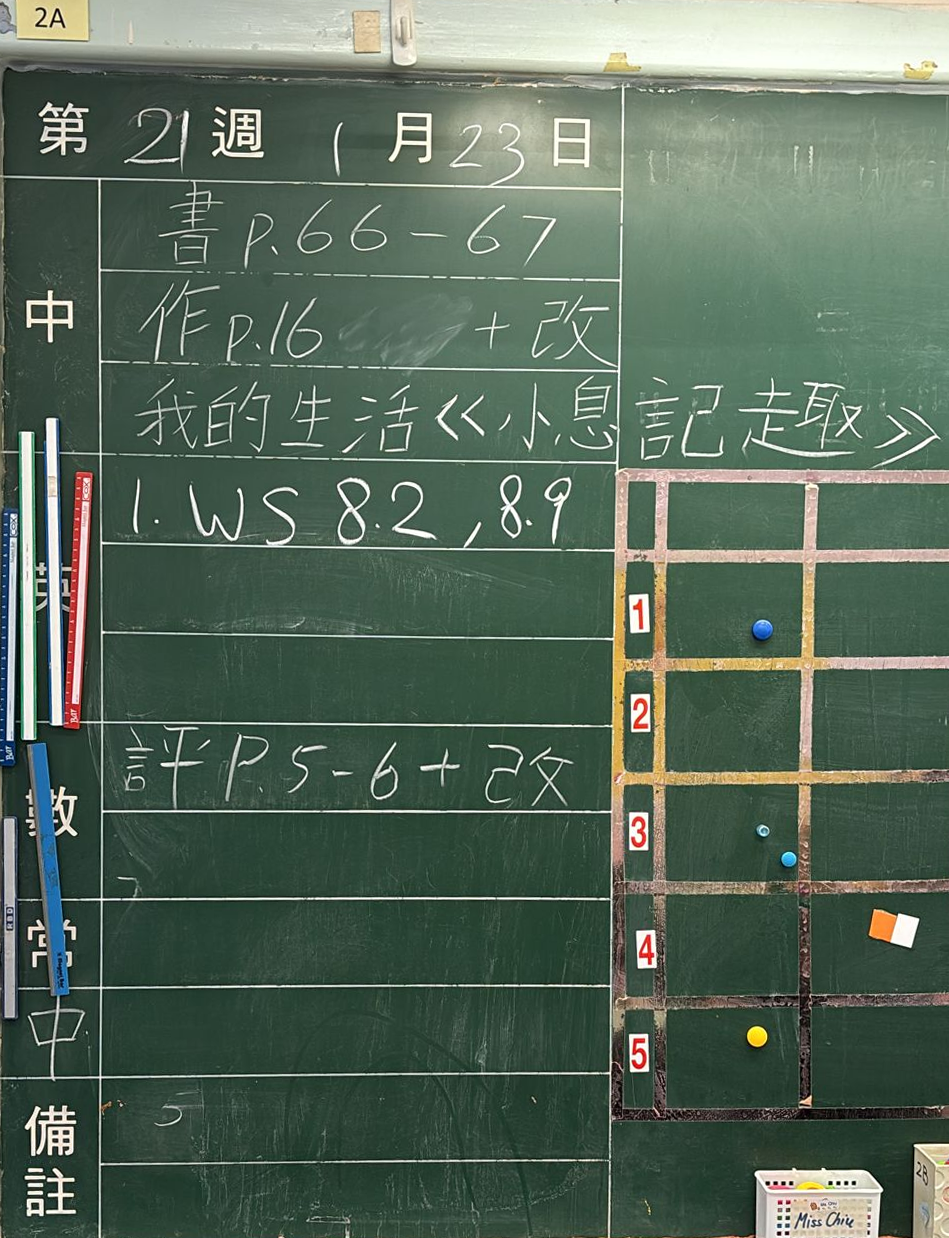 2A
第 21 週 1 月 23 日
中
書 p.66-67
作 p.16 + 改
我的生活《小息記走趣》
英
1. WS 8.2 , 8.9
數
評 P.5-6 + 改
常
中
備註
1
2
3
4
5
Miss Chiu
2B